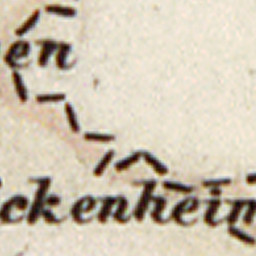 en
ckenheim